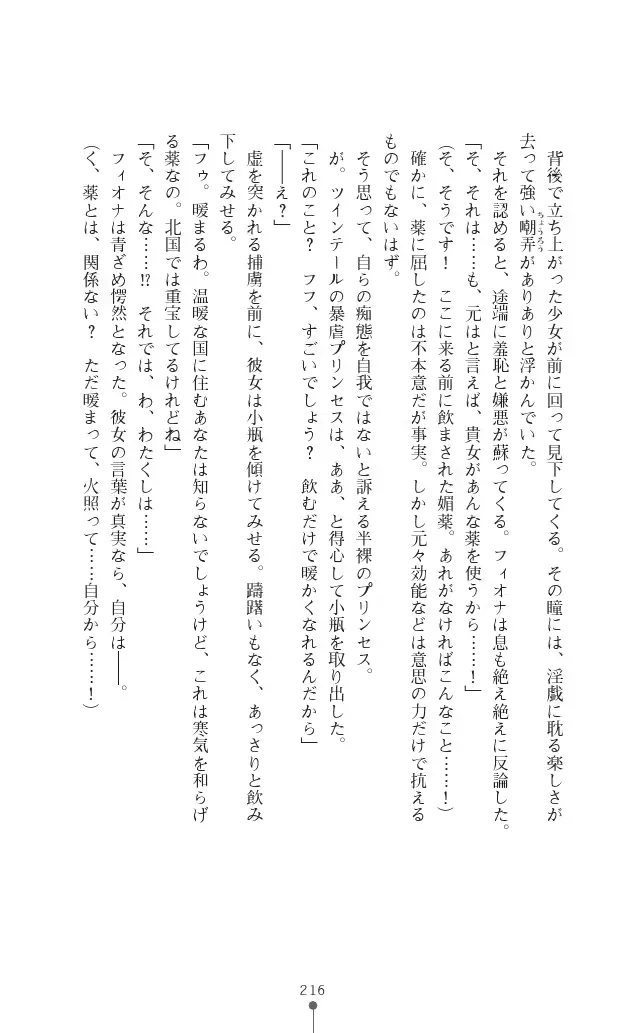 背後で立ち上がった少女が前に回って見下してくる。その瞳には、淫戯に耽る楽しさが
去って強い嘲弄がありありと浮かんでいた。
ちょうろう
それを認めると、途端に羞恥と嫌悪が蘇ってくる。フィオナは息も絶え絶えに反論した。
「そ、それは……も、元はと言えば、貴女があんな薬を使うから……！」
（そ、そうです！　ここに来る前に飲まされた媚薬。あれがなければこんなこと……！）
確かに、薬に屈したのは不本意だが事実。しかし元々効能などは意思の力だけで抗える
ものでもないはず。
そう思って、自らの痴態を自我ではないと訴える半裸のプリンセス。
が。ツインテールの暴虐プリンセスは、ああ、と得心して小瓶を取り出した。
「これのこと？　フフ、すごいでしょう？　飲むだけで暖かくなれるんだから」
「――え？」
虚を突かれる捕虜を前に、彼女は小瓶を傾けてみせる。躊躇いもなく、あっさりと飲み
下してみせる。
「フゥ。暖まるわ。温暖な国に住むあなたは知らないでしょうけど、これは寒気を和らげ
る薬なの。北国では重宝してるけれどね」
「そ、そんな……!?　それでは、わ、わたくしは……」
フィオナは青ざめ愕然となった。彼女の言葉が真実なら、自分は――。
（く、薬とは、関係ない？　ただ暖まって、火照って……自分から……！）
216